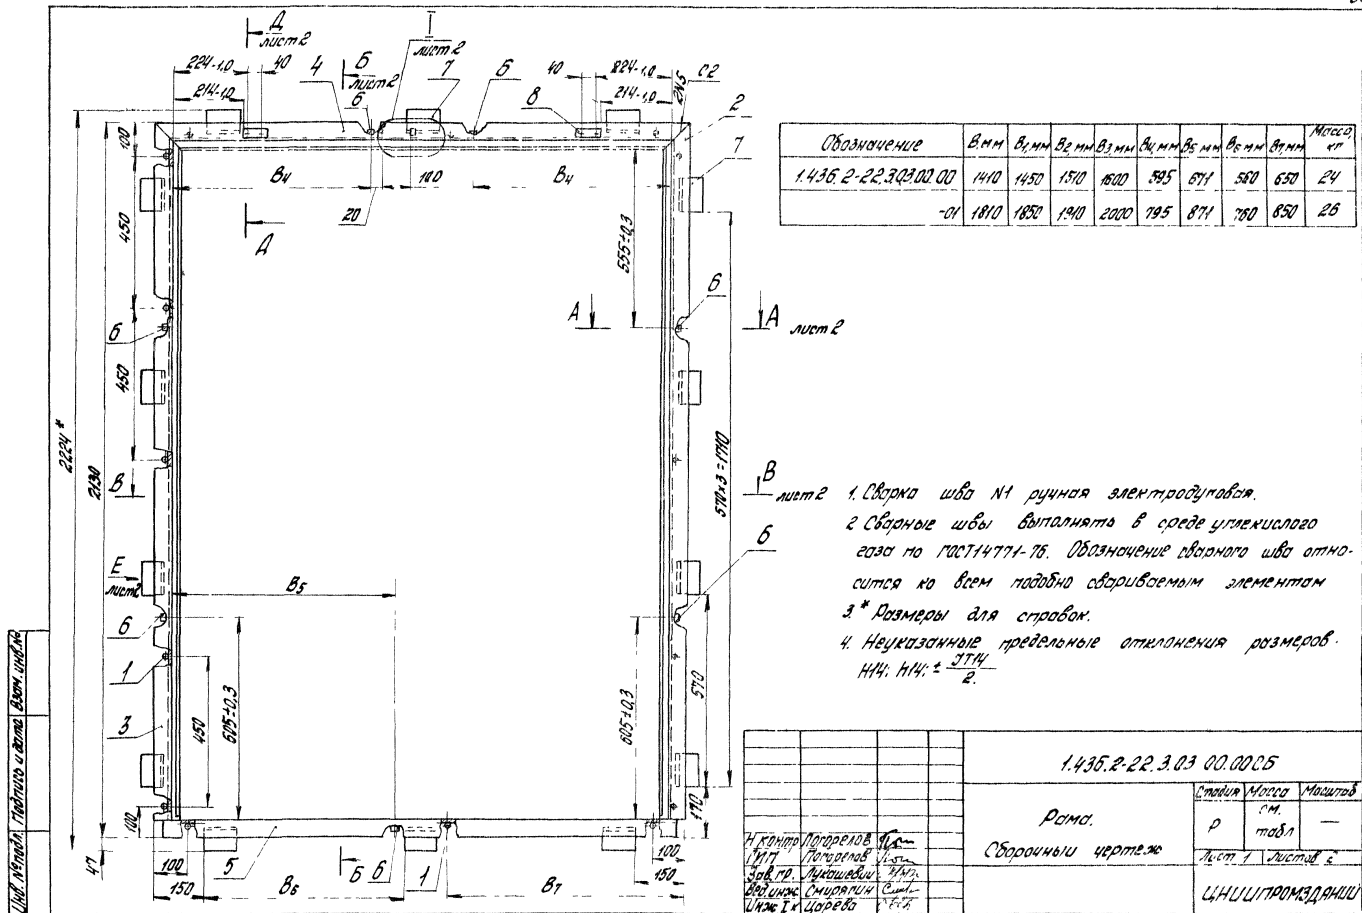 Д
лист 2
I
лист 2
224-1,0
40
4
Б
лист 2
7
6
40
824-1,0
С2
214-1,0
6
8
214-1,0
2N5
2
7
100
В4
100
В4
20
Д
450
555±0,3
6
А
А
лист 2
6
450
2224*
2130
В
В
лист 2
570х3=1710
Е
лист 2
В5
6
6
1
3
450
605±0,3
605±0,3
570
100
170
47
100
150
5
В6
Б
6
1
В7
100
150
Обозначение В,мм В1,мм В2,мм В3,мм В4,мм В5,мм В6,мм В7,мм Масса, кг
1.436.2-22.3.03.00.00 1410 1450 1510 1600 595 671 560 650 24
-01 1810 1850 1910 2000 795 871 760 850 26
1. Сварка шва N1 ручная электродуговая.
2 Сварные швы выполнять в среде углекислого
газа по ГОСТ 14771-76. Обозначение сварного шва отно-
сится ко всем подобно свариваемым элементам
3.* Размеры для справок.
4. Неуказанные предельные отклонения размеров.
H14; h14; ± JT14/2.
1.436.2-22.3.03 00.00СБ
Рама.
Сборочный чертеж
Стадия Масса Масштаб
Р см. табл —
Лист 1 Листов 2
ЦНИИПРОМЗДАНИЙ
Н контр Погорелов
ГИП Погорелов
Зав. гр. Лукашевич
Вед. инж. Смирягин
Инж I к Царева
Инв. № подл. Подпись и дата Взам. инв. №